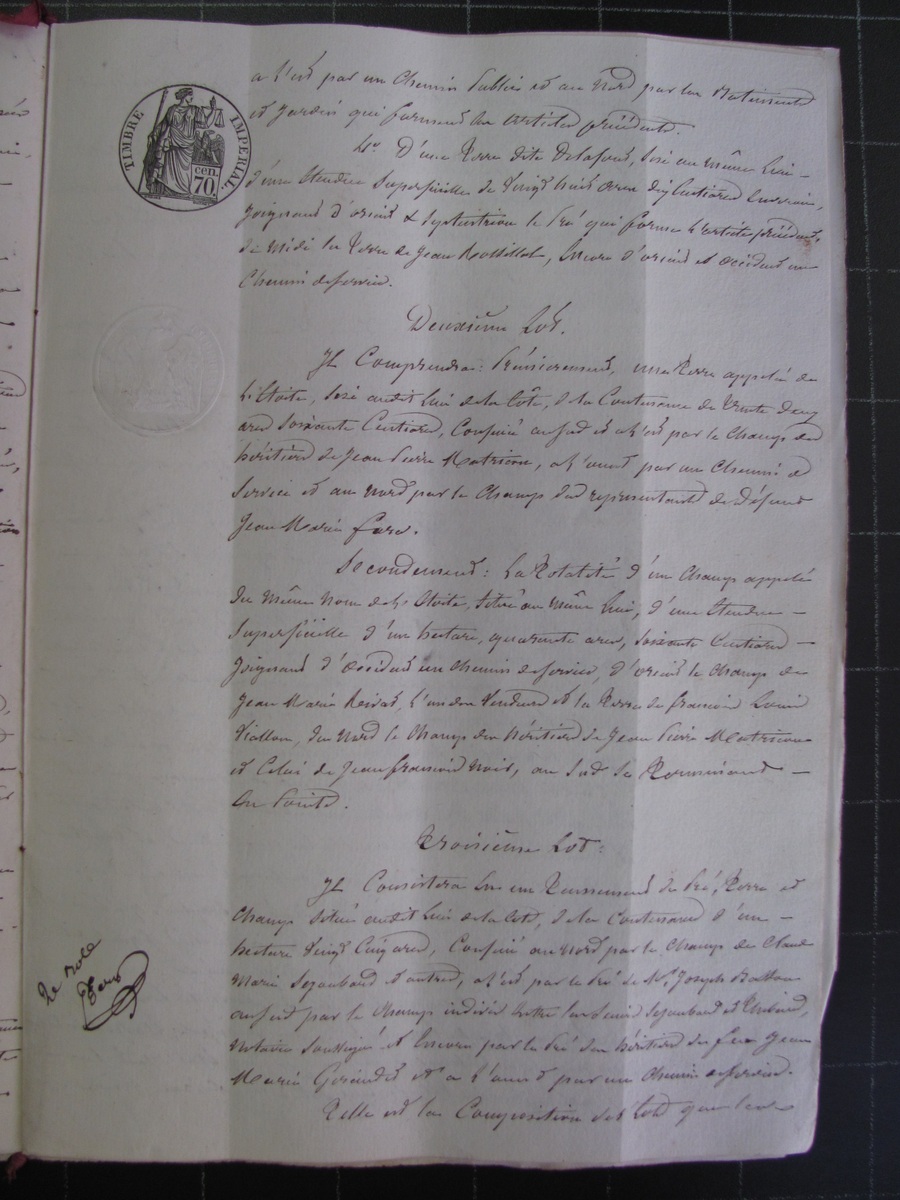 TIMBRE IMPERIAL
cen.
70.
a l'est par un chemin public et au nord par les Batiments
et Jardin qui forment les articles précédents.
4º D'une Terre dite Delafont, sise au même lieu
d'une étendue superficielle de vingt huit ares dix centiares environ,
Joignant d'orient & septentrion le Pré qui forme l'article précédent,
de midi la Terre de Jean, encore d'orient et occident un
chemin de service.
Deuxième Lot.
Il Comprendra: Premièrement, une Terre appelée de
L'Etoite, sise audit lieu de la Côte, de la Contenance de trente deux
ares soixante Centiares, Confiné au sud et à l'est par le champ des
héritiers de Jean Pierre Matricon, à l'ouest par un chemin de
service et au nord par le champ des représentants de défunt
Jean Marie faro.
Secondement: La Totalité d'un champ appelé
du même nom de L'Etoite, situé au même lieu, d'une étendue
superficielle d'un hectare, quarante ares, soixante Centiares
Joignant d'occident un chemin de service, d'orient le champ de
Jean Marie, l'un des vendeurs et la Terre de francois Louis
Viallon, du nord le champ des héritiers de Jean Pierre Matricon
et Celui de Jean francois Noir, au sud se Terminant
en Pointe.
Troisième Lot.
Il Consistera en un Tennement de Pré, Terre et
champ situé audit lieu de la Côte, de la Contenance d'un
hectare vingt cinq ares, Confiné au nord par le champ de Claude
Marie Sejoubard et autres, à l'est par le Pré de Mr Joseph
au sud par le champ indivis entre les Srs Sejoubard et
notaire soussigné et encore par le Pré des héritiers de feu Jean
Marie Giraudet et à l'ouest par un chemin de service.
Telle est la Composition des Lots que les
2e role